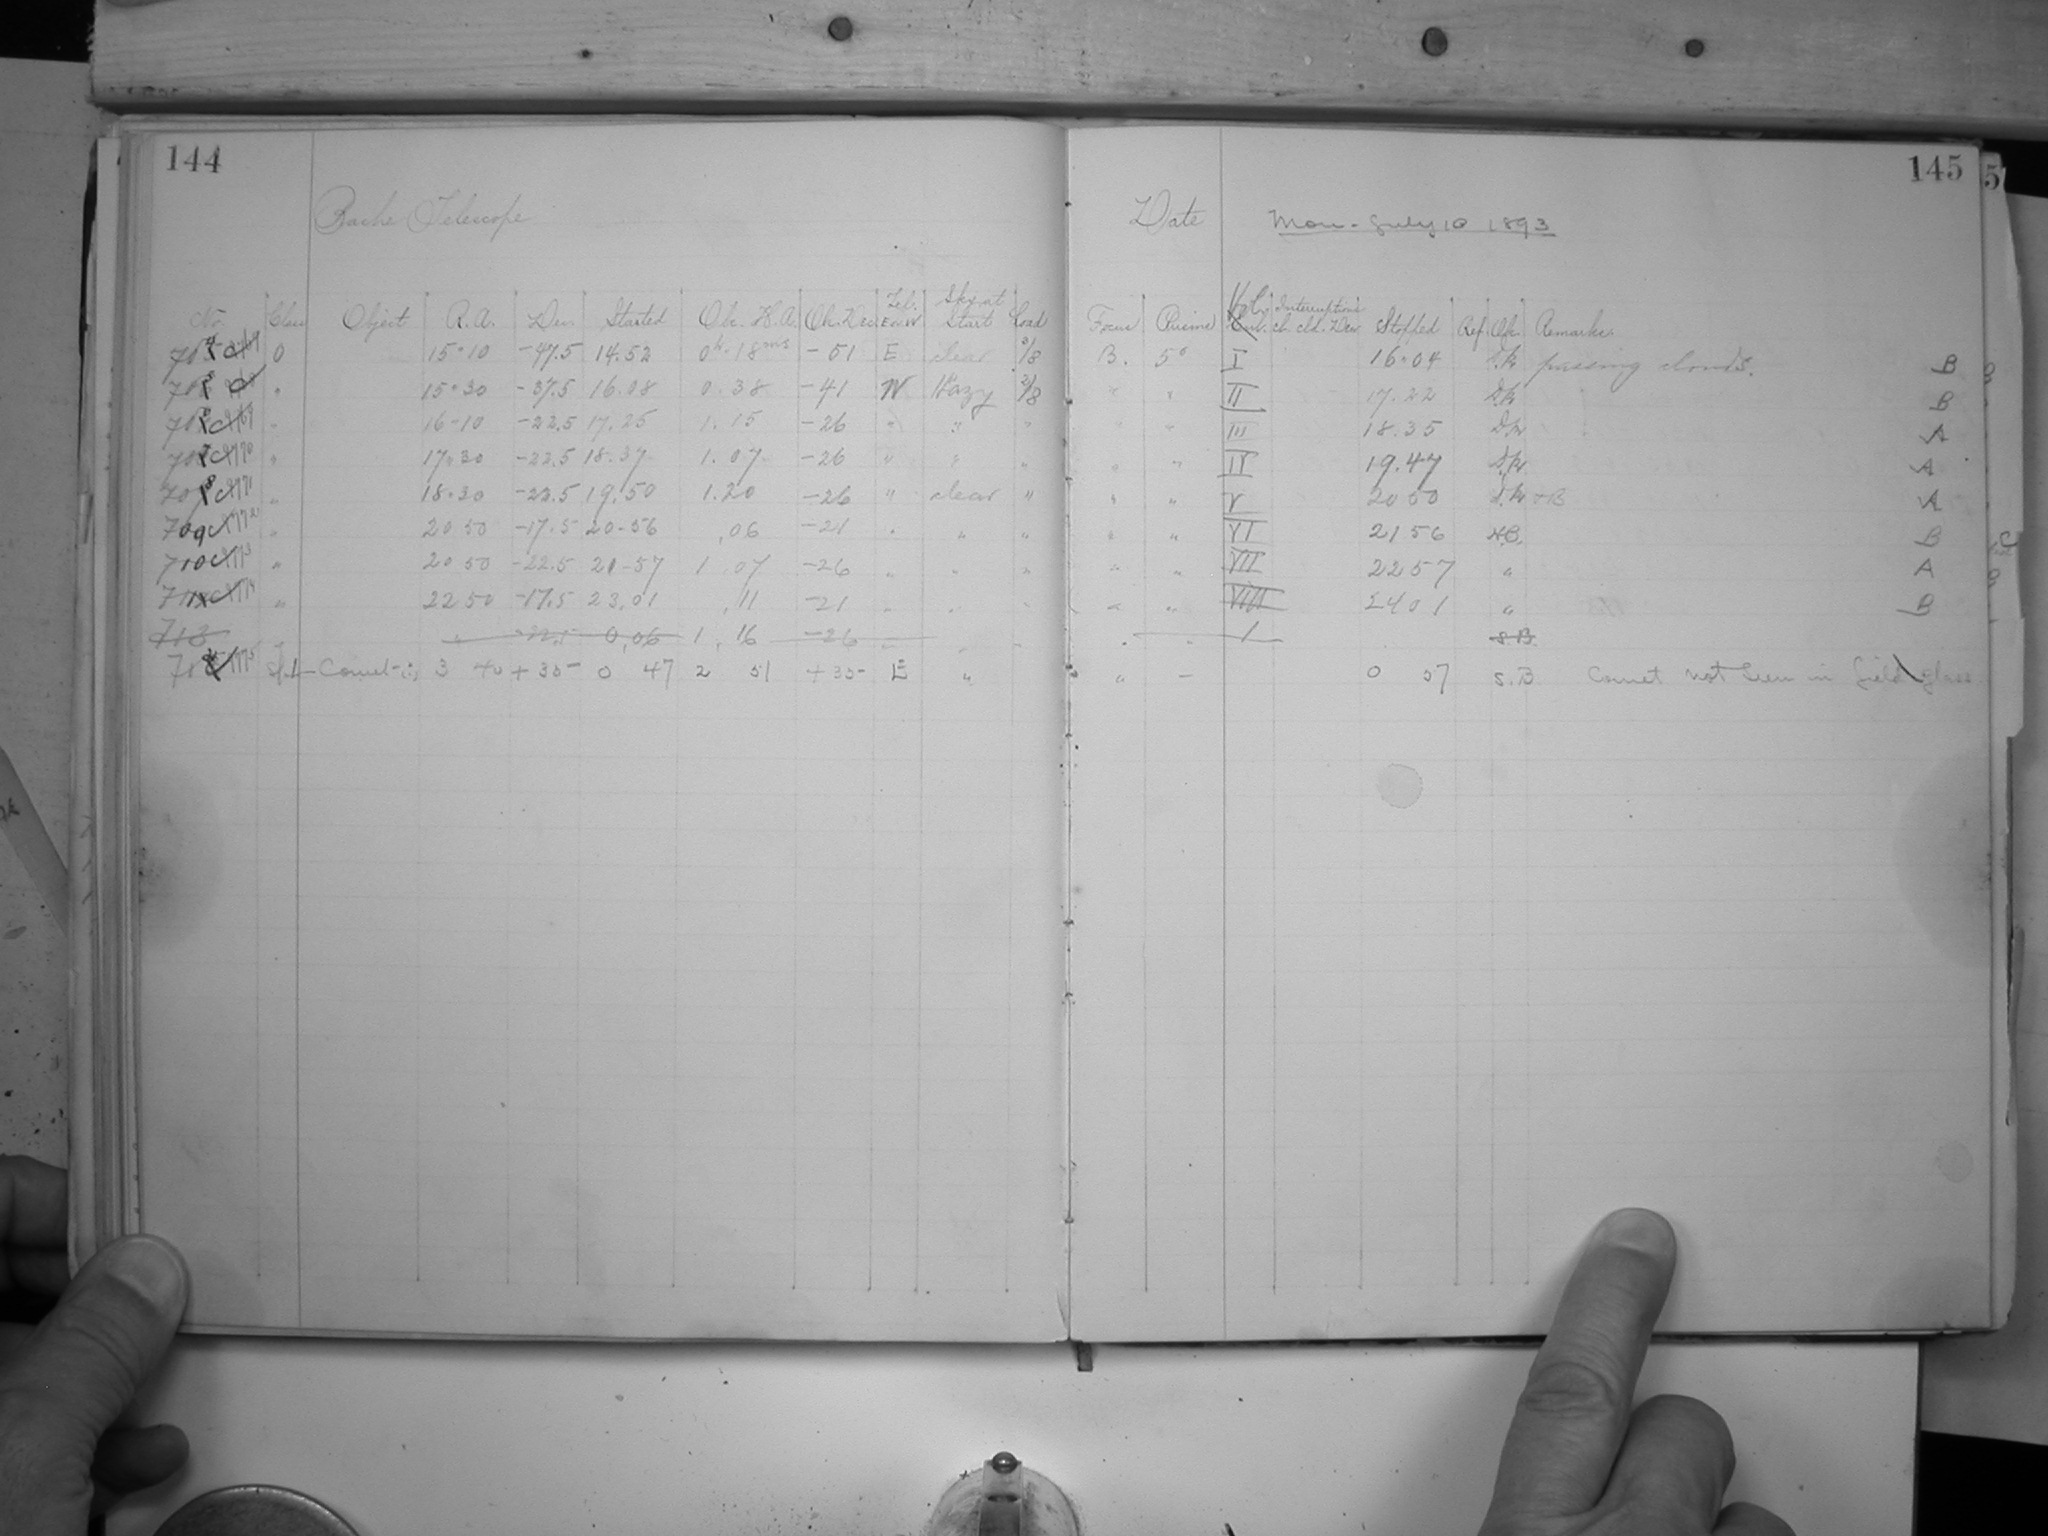 144
145
Bache Telescope
Date Mon - July 10 1893
No. Class Object R.A. Dec. Started Ob. H.A. Ob. Dec. Tel. E or W Sky at Start Load
Focus Prism Interruptions Stopped Ref. Ob. Remarks.
0 15-10 -47.5 14.52 0h-18ms -51 E clear 3/8 B. 5° I 16-04 passing clouds. B
" 15-30 -37.5 16.08 0.38 -41 W Hazy 3/8 " " II 17.22 B
" 16-10 -22.5 17.25 1.15 -26 " " " " " III 18.35 A
" 17.30 -22.5 18.37 1.07 -26 " " " " " IV 19.47 A
" 18.30 -22.5 19.50 1.20 -26 " clear " " " V 20 50 A
709 " 20 50 -17.5 20-56 .06 -21 " " " " " VI 21 56 B
710 " 20 50 -22.5 21-57 1.07 -26 " " " " " VII 22 57 " A
" 22 50 -17.5 23.01 .11 -21 " " " " " VIII 24 01 " B
-22.5 0.06 1.16 -26 1 S.B.
Comet 3 40 +35- 0 47 2 51 +35- E " " - 0 57 S.B Comet not seen in field glass